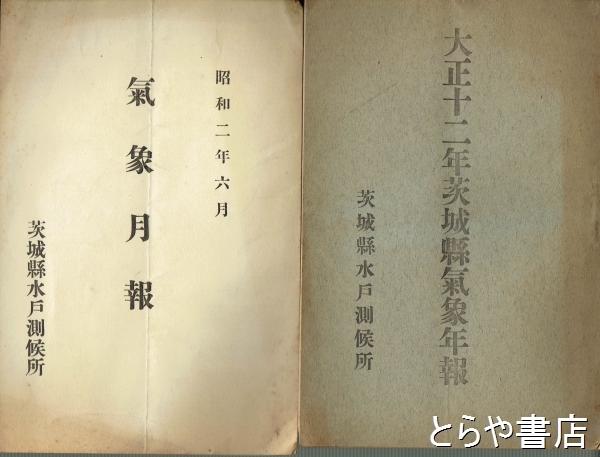 昭和二年六月
氣象月報
茨城縣水戸測候所
大正十二年茨城縣氣象年報
茨城縣水戸測候所
とらや書店